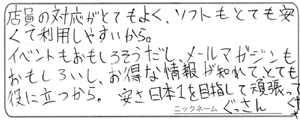 店員の対応がとてもよく、ソフトもとても安
くて利用しやすいから。
イベントもおもしろそうだし、メールマガジンも
おもしろいし、お得な情報が知れて、とても
役に立つから。 安さ日本1を目指して頑張って
ニックネーム ぐっさん く